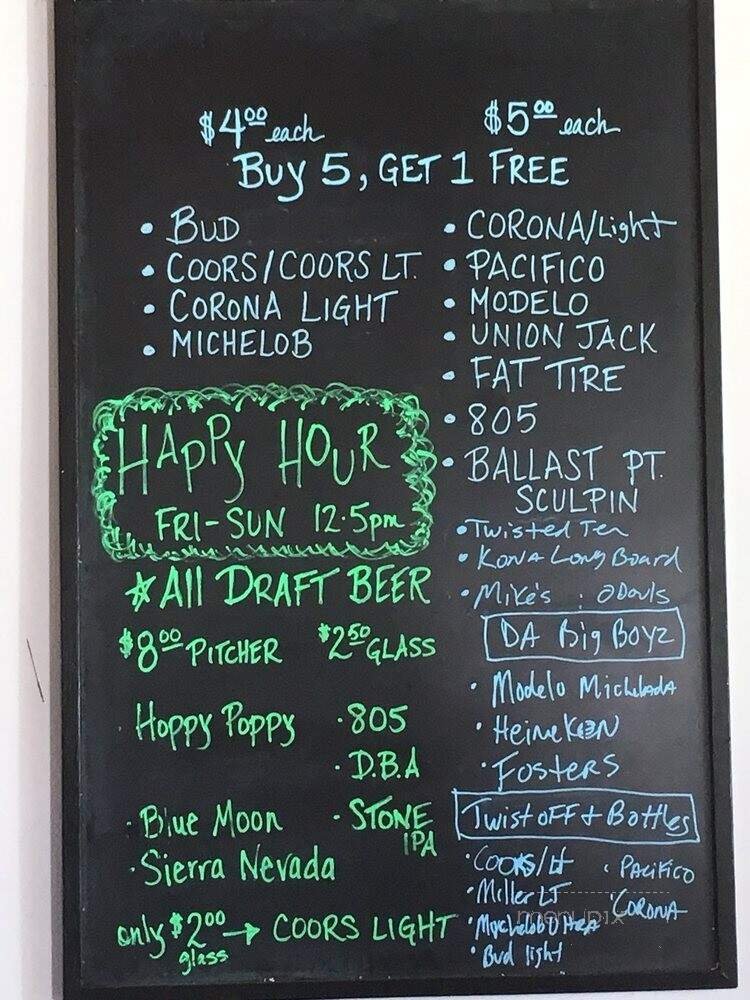 $4.00 each
$5.00 each
Buy 5, GET 1 FREE
• BUD
• COORS/COORS LT.
• CORONA LIGHT
• MICHELOB
• CORONA/Light
• PACIFICO
• MODELO
• UNION JACK
• FAT TIRE
• 805
• BALLAST PT.
SCULPIN
• Twisted Tea
• KONA Long Board
• Mike's : ODouls
HAPPY HOUR
FRI-SUN 12-5pm
☆ All DRAFT BEER
$8.00 PITCHER $2.50 GLASS
Hoppy Poppy · 805
· D.B.A
· Blue Moon · STONE
IPA
· Sierra Nevada
only $2.00 → COORS LIGHT
glass
DA Big Boyz
• Modelo Michelada
• HeineKEN
• FosterS
Twist oFF + Bottles
• Coors/Lt • PACIFICO
• Miller LT • CORONA
• Mychelob Ultra
• Bud light
menupix